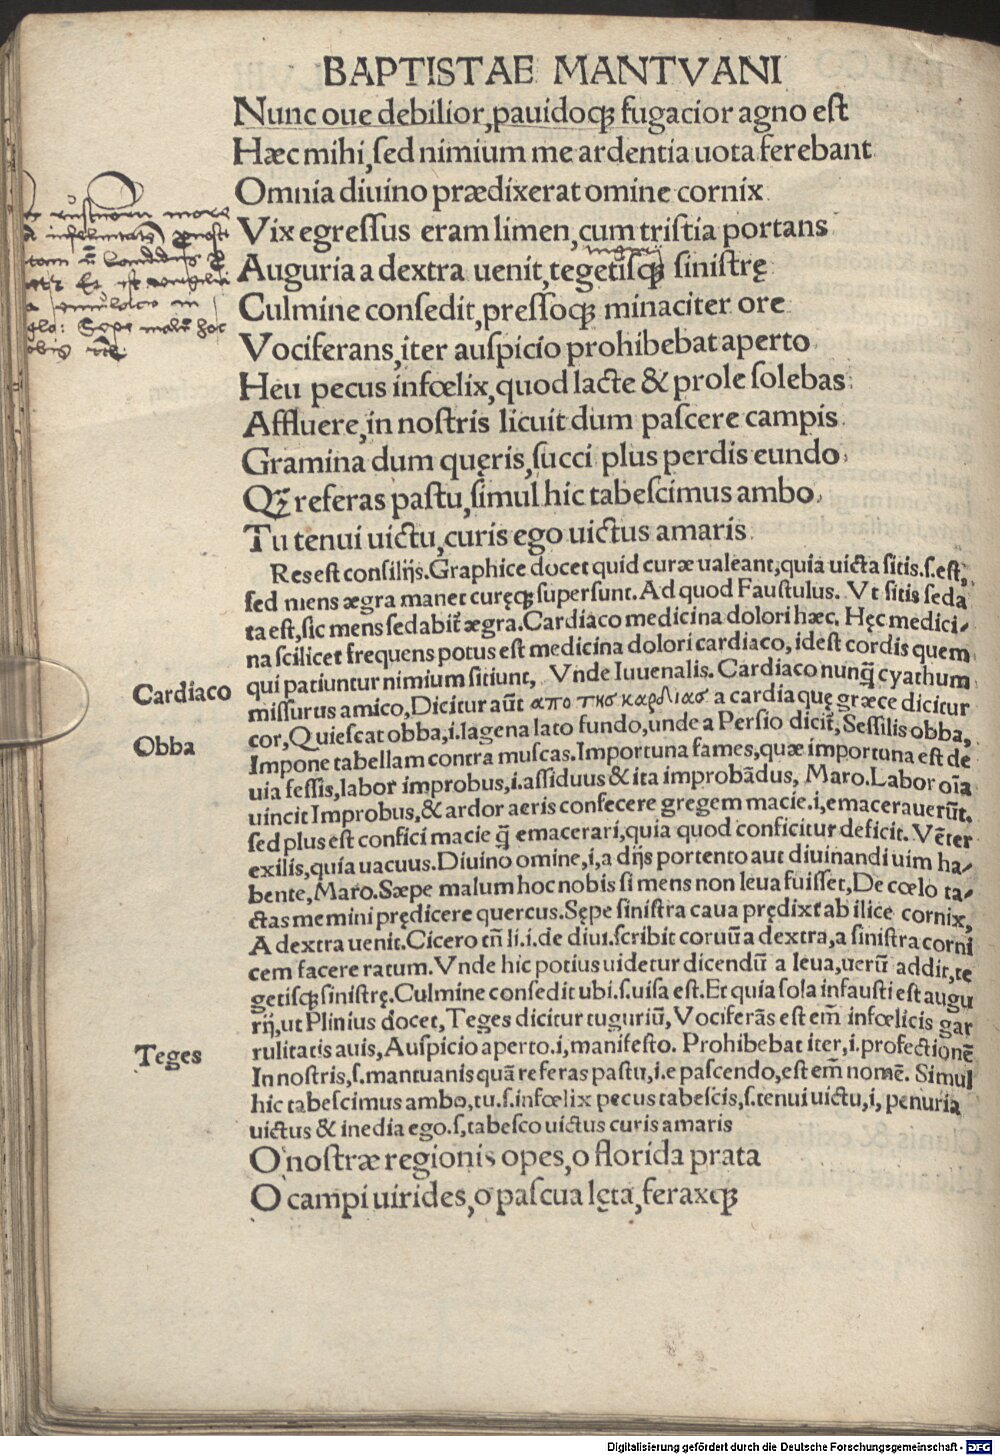 BAPTISTAE MANTVANI
Nunc oue debilior, pauidoqꝫ fugacior agno est
Hæc mihi, sed nimium me ardentia uota ferebant
Omnia diuino prædixerat omine cornix
Vix egressus eram limen, cum tristia portans
Auguria a dextra uenit, tegetisqꝫ sinistrę
Culmine consedit, pressoqꝫ minaciter ore
Vociferans, iter auspicio prohibebat aperto
Heu pecus infœlix, quod lacte & prole solebas
Affluere, in nostris licuit dum pascere campis
Gramina dum quęris, succi plus perdis eundo
Qꝫ referas pastu, simul hic tabescimus ambo,
Tu tenui uictu, curis ego uictus amaris
Res est consilijs. Graphice docet quid curæ ualeant, quia uicta sitis. s. est,
sed mens ægra manet curęqꝫ supersunt. Ad quod Faustulus. Vt sitis seda
ta est, sic mens sedabit̄ ægra. Cardiaco medicina dolori hæc. Hęc medici/
na scilicet frequens potus est medicina dolori cardiaco, idest cordis quem
qui patiuntur nimium sitiunt, Vnde Iuuenalis. Cardiaco nunq̄ cyathum
Cardiaco
missurus amico, Dicitur aūt απο της καρδιας a cardia quę græce dicitur
cor, Quiescat obba, i. lagena lato fundo, unde a Persio dicit̄, Sessilis obba,
Obba
Impone tabellam contra muscas. Importuna fames, quæ importuna est de
uia fessis, labor improbus, i. assiduus & ita improbādus, Maro. Labor oīa
uincit Improbus, & ardor aeris confecere gregem macie. i, emacerauerūt.
sed plus est confici macie q̄ emacerari, quia quod conficitur deficit. Vēter
exilis, quia uacuus. Diuino omine, i, a dijs portento aut diuinandi uim ha/
bente, Maro. Sæpe malum hoc nobis si mens non leua fuisset, De cœlo ta/
ctas memini prędicere quercus. Sępe sinistra caua prędixt ab ilice cornix,
A dextra uenit. Cicero tn̄ li. i. de diui. scribit coruū a dextra, a sinistra corni
cem facere ratum. Vnde hic potius uidetur dicendū a leua, uerū addit, te
getisqꝫ sinistrę. Culmine consedit ubi. s. uisa est. Et quia sola infausti est augu
rij, ut Plinius docet, Teges dicitur tuguriū, Vociferās est em̄ infœlicis gar
Teges
rulitatis auis, Auspicio aperto. i, manifesto. Prohibebat iter, i. profectionē
In nostris, s. mantuanis quā referas pastu, i. e pascendo, est em̄ nomē. Simul
hic tabescimus ambo, tu. s. infœlix pecus tabescis, s. tenui uictu, i, penuria
uictus & inedia ego. s, tabesco uictus curis amaris
O nostræ regionis opes, o florida prata
O campi uirides, o pascua lęta, feraxqꝫ
Digitalisierung gefördert durch die Deutsche Forschungsgemeinschaft - DFG